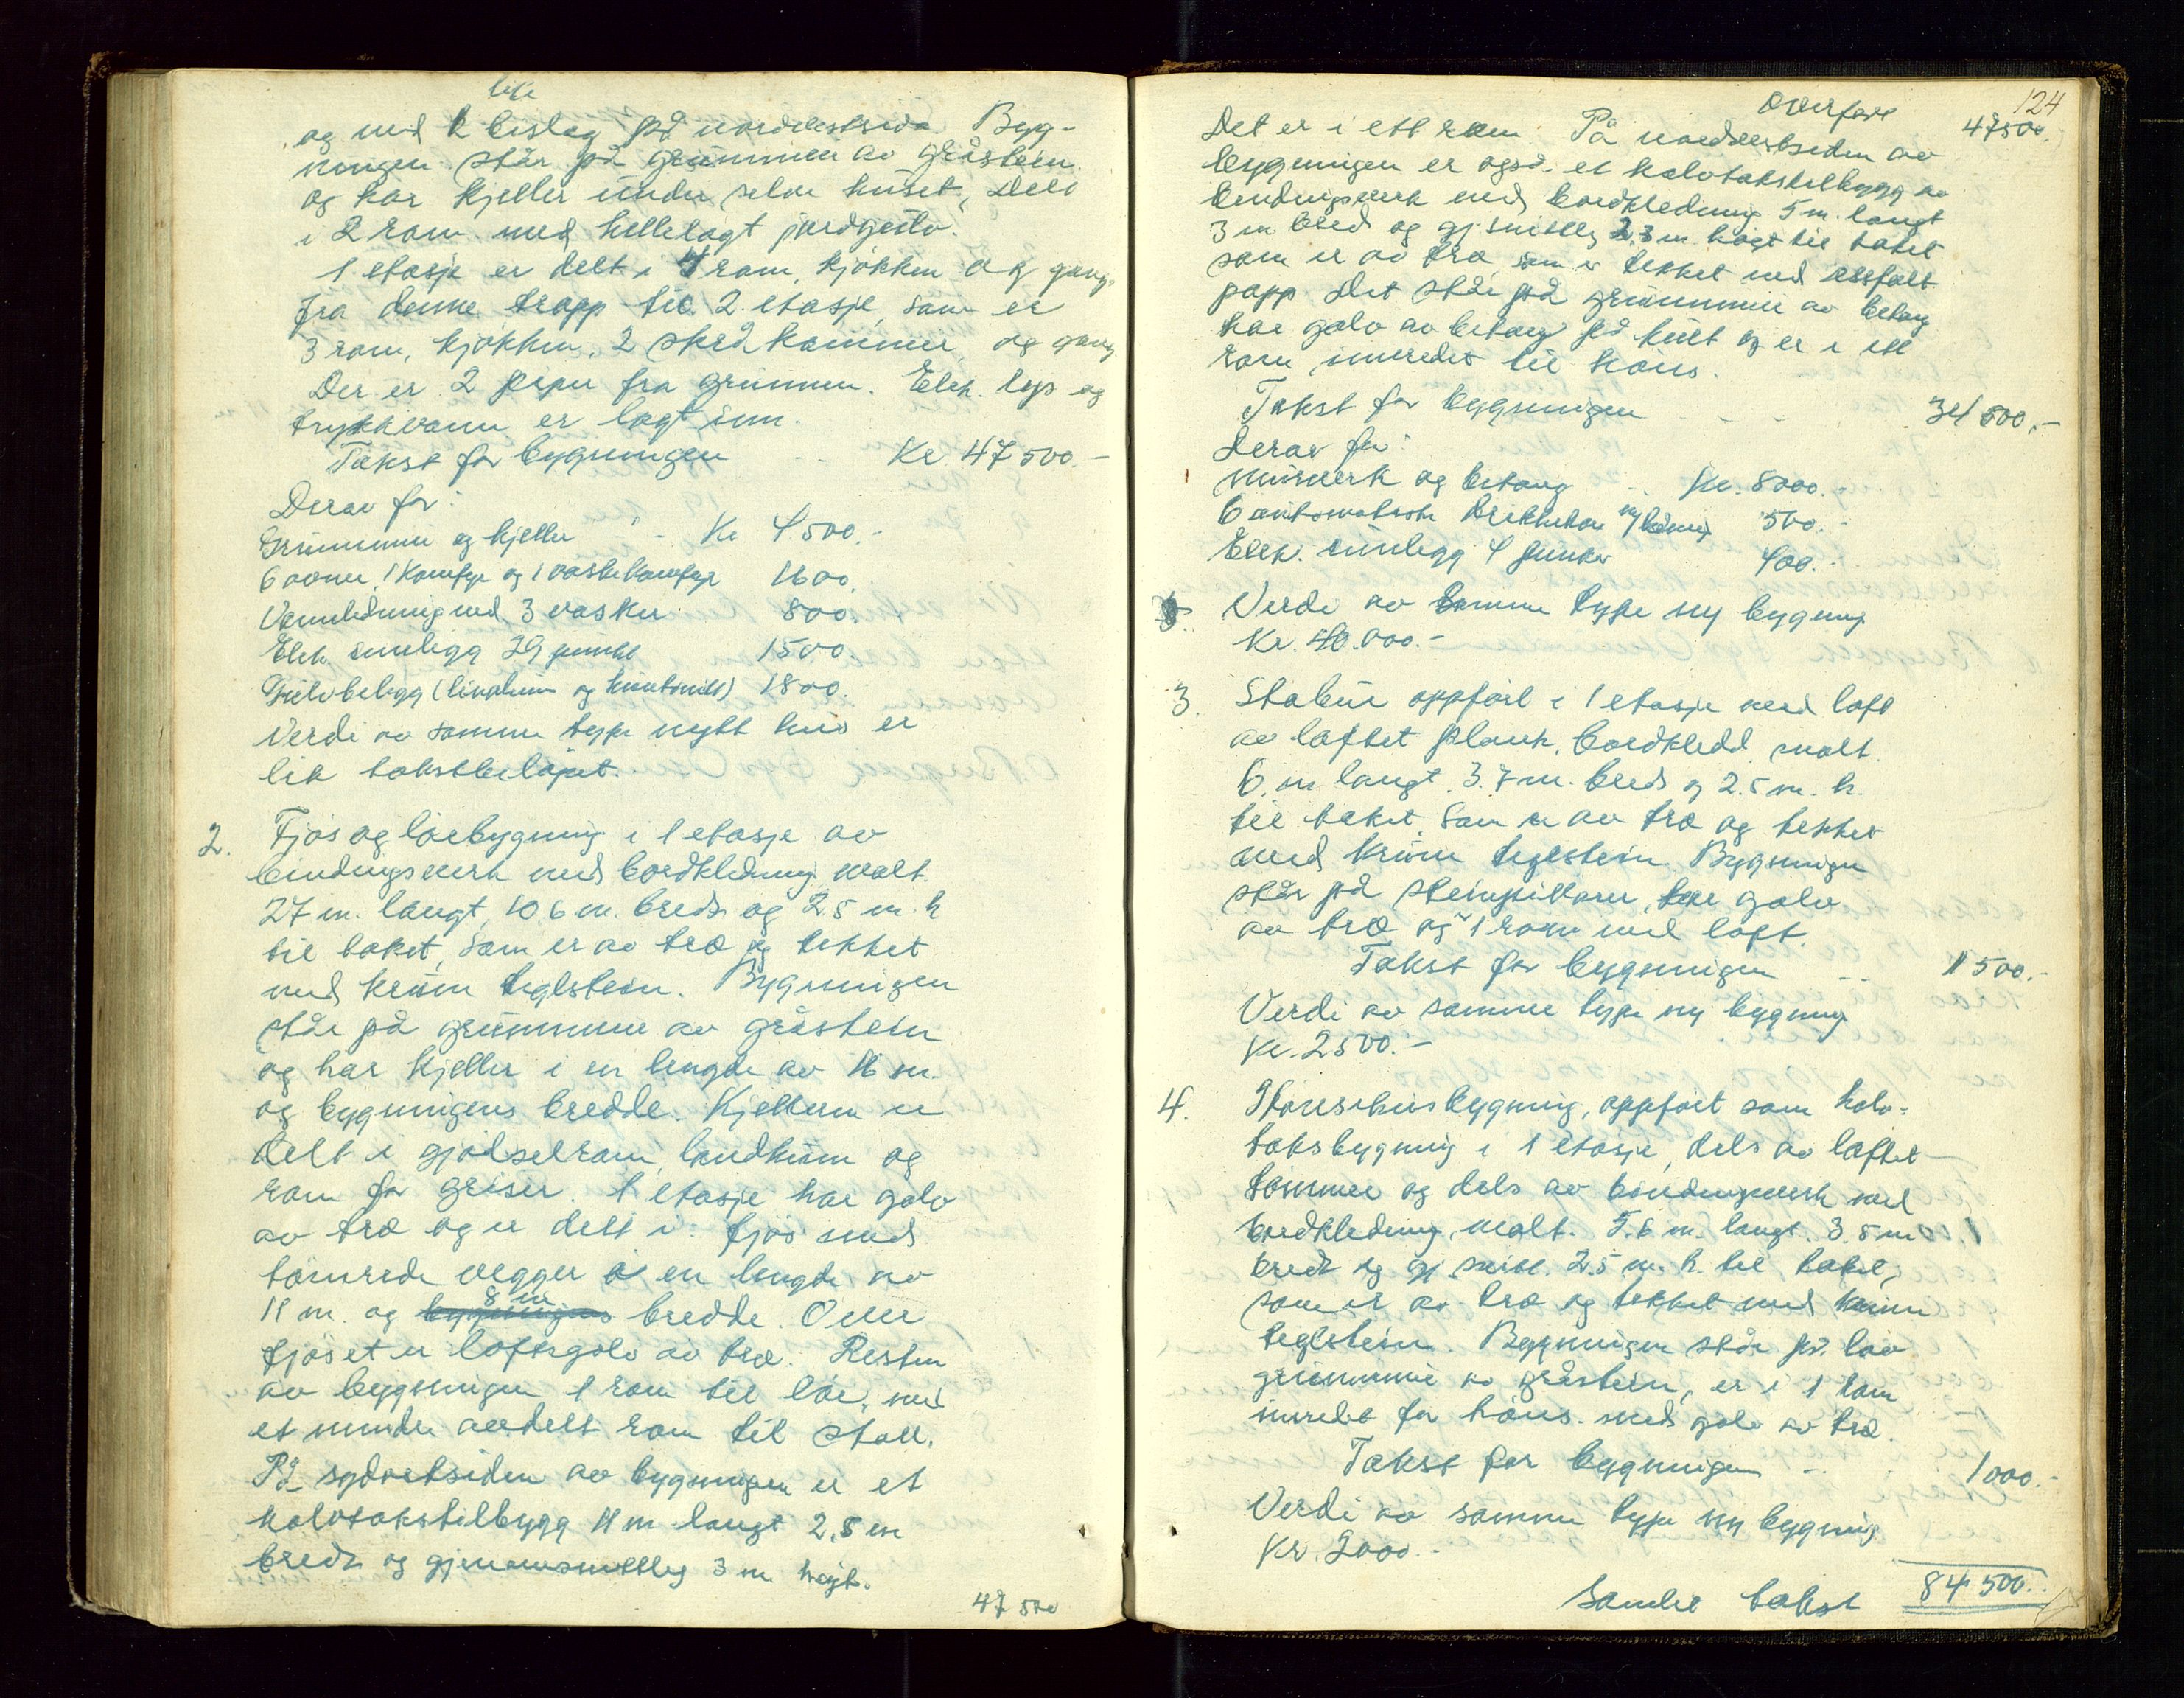 lite
og med 1 bislag på nordvestside. Byg-
ningen står på grunnmur av gråstein
og har kjeller under selve huset, delt
i 2 rom med hellelagt jordgolv.
1 etasje er delt i 4 rom, kjøkken og gang,
fra denne trapp til 2. etasje, som er
3 rom, kjøkken, 2 skråkammer, og gang
Der er 2 piper fra grunnen. Elek. lys og
trykkvann er lagt inn.
Takst for bygningen - - Kr 47 500.-
Derav for:
Grunnmur og kjeller - Kr 4 500.-
6 ovner, 1 komfyr og 1 vaskekomfyr 1600.
Vannledning med 3 vasker 800.
Elek. innlegg 29 punkt 1500.
Gulvbelegg (linoleum og ) 1800.
Verdi av samme type nytt hus er
lik takstbeløpet.
2. Fjøs og løebygning i 1 etasje av
bindingsverk med bordkledning malt.
27 m. langt, 10,6 m. bredt og 2,5 m. h
til taket, som er av tre og tekket
med krum teglstein. Bygningen
står på grunnmur av gråstein
og har kjeller i en lengde av 16 m.
og bygningens bredde. Kjelleren er
delt i gjødselrom, landkum og
rom for griser. 1 etasje har golv
av tre og er delt i: fjøs med
tømrede vegger i en lengde av
8 m
11 m. og bygningens bredde. Over
fjøset er loftsgolv av tre. Resten
av bygningen 1 rom til løe, med
et mindre avdelt rom til stall.
På sydvestsiden av bygningen er et
halvtakstilbygg 11 m langt 2,5 m
bredt og gjennomsnittlig 3 m høyt.
47 500
124
Overført 47500.
Det er i ett rom. På nordvestsiden av
bygningen er også et halvtakstilbygg av
bindingsverk med bordkledning 5 m. langt
3 m bred og gj.snittlig 2,3 m. høgt til taket
som er av tre, som er tekket med assfalt
papp. Det står på grunnmur av betong
har golv av betong på kult og er i ett
rom innredet til høns.
Takst for bygningen - - 34 500.-
Derav for:
murverk og betong - - Kr. 8000.-
6 automatiske drikkekar m/ledning 500.-
Elek. innlegg 4 punkter 400.-
Verdi av samme type ny bygning
Kr. 40.000.-
3. Stabur oppført i 1 etasje med loft
av laftet plank, bordkledd, malt.
6 m langt. 3.7 m. bred og 2.5 m. h.
til taket som er av tre og tekket
med krum teglstein. Bygningen
står på steinpillarer, har golv
av tre og 1 rom med loft.
Takst for bygningen - - 1 500.-
Verdi av samme type ny bygning
Kr. 2500.-
4. Hønsehusbygning, oppført som halv-
taksbygning i 1 etasje, dels av laftet
tømmer og dels av bindingsverk med
bordkledning, malt. 5.6 m. langt. 3.5 m
bredt og gj.snitl. 2.5 m. h. til taket,
som er av tre og tekket med krum
teglstein. Bygningen står på lav
grunnmur av gråstein, er i 1 rom
innredet for høns. med golv av tre.
Takst for bygningen - 1000.-
Verdi av samme type ny bygning
Kr. 2000.-
Samlet takst 84 500.-